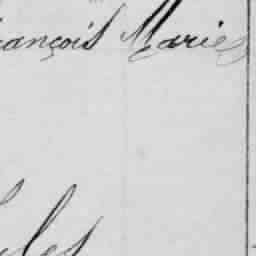 ançois Marie
les